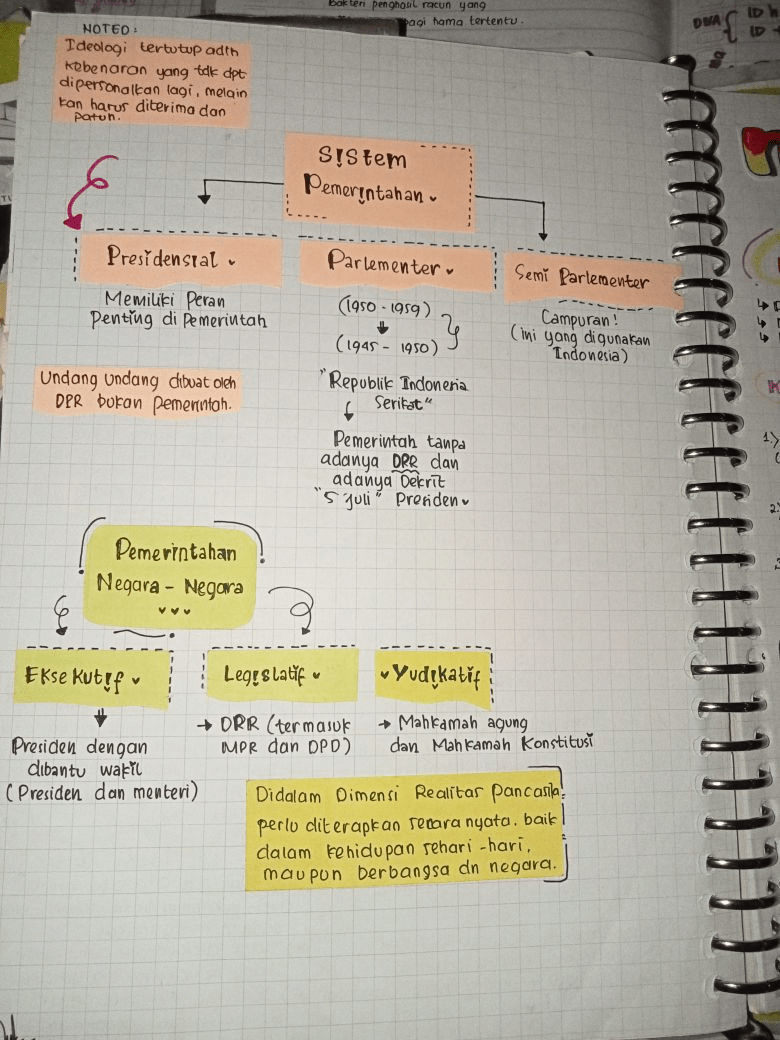 bakteri penghasil racun yang
bagi hama tertentu.
DNA { ID
ID
NOTED:
Ideologi tertutup adlh
kebenaran yang tdk dpt
dipersonalkan lagi, melain
kan harus diterima dan
patuh.
Sistem
Pemerintahan
Presidensial
Memiliki Peran
Penting di Pemerintah
Parlementer
(1950 - 1959)
(1945 - 1950)
"Republik Indonesia
Serikat"
Pemerintah tanpa
adanya DPR dan
adanya Dekrit
"5 Juli" Presiden
Semi Parlementer
Campuran!
(ini yang digunakan
Indonesia)
Undang Undang dibuat oleh
DPR bukan pemerintah.
Pemerintahan
Negara - Negara
Eksekutif
Presiden dengan
dibantu wakil
(Presiden dan menteri)
Legislatif
→ DPR (termasuk
MPR dan DPD)
Yudikatif
→ Mahkamah agung
dan Mahkamah Konstitusi
Didalam Dimensi Realitas Pancasila
perlu diterapkan secara nyata. baik
dalam kehidupan sehari-hari,
maupun berbangsa dn negara.
1.)
2)